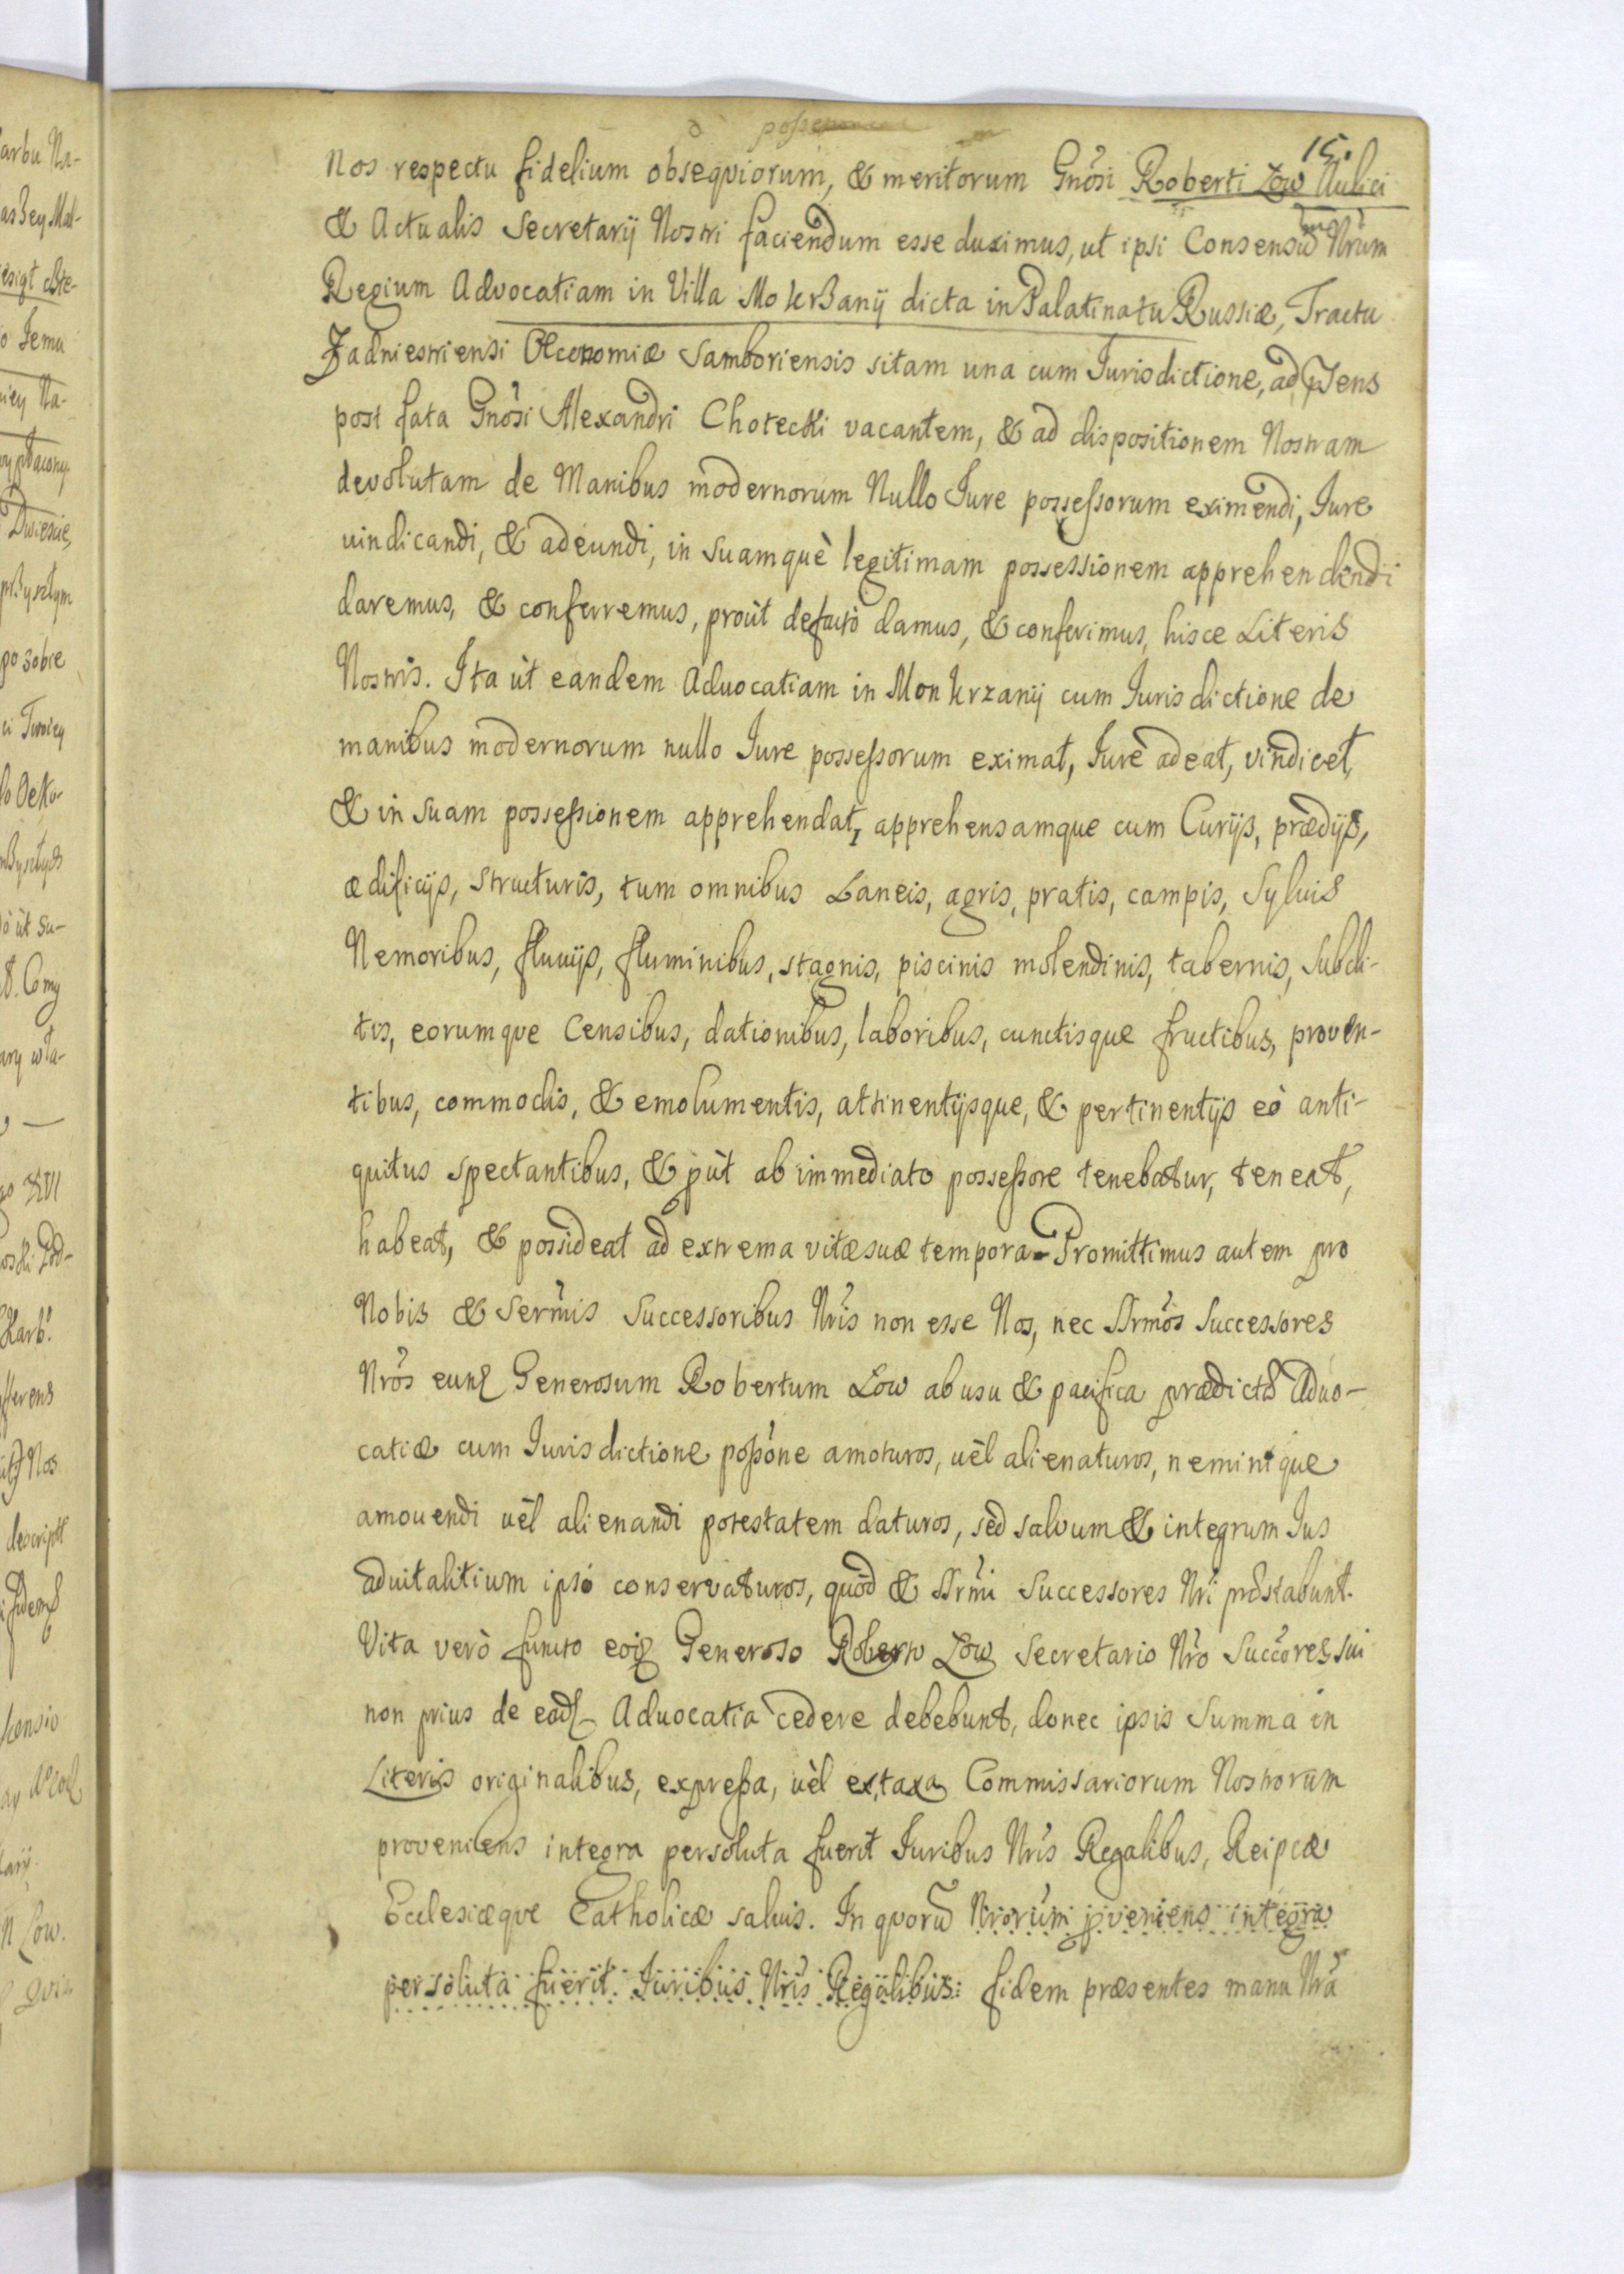 15.
Nos respectu fidelium obsequiorum, & meritorum Gnõsi Roberti Low Aulici
& Actualis Secretarij Nostri faciendum esse duximus, ut ipsi Consensũ Nrũm
Regium Advocatiam in Villa Mokrßanij dicta in Palatinatu Russiæ, Tractu
Zadniestriensi Oeconomiæ Samboriensis sitam una cum Jurisdictione, ad
post fata Gnõsi Alexandri Chotecki vacantem, & ad dispositionem Nostram
devolutam de Manibus modernorum Nullo Jure possessorum eximendi, Jure
uindicandi, & adeundi, in suamquè legitimam possessionem apprehendendi
daremus, & conferremus, proùt defacto damus, & conferimus, hisce Literis
Nostris. Ita ùt eandem Aduocatiam in Monkrzanij cum Jurisdictione de
manibus modernorum nullo Jure possessorum eximat, Jurè adeat, vindicet,
& in suam possessionem apprehendat, apprehensamque cum Curijs, prædijs,
ædificijs, structuris, tum omnibus Laneis, agris, pratis, campis, Syluis
Nemoribus, fluuijs, fluminibus, stagnis, piscinis molendinis, tabernis, Subdi-
tis, eorumque Censibus, dationibus, laboribus, cunctisque fructibus, proven-
tibus, commodis, & emolumentis, attinentijsque, & pertinentijs eò anti-
quitus spectantibus, & pùt ab immediato possessore tenebatur, teneat,
habeat, & possideat ad extrema vitæ suæ tempora. Promittimus autem pro
Nobis & Sermĩs Successoribus Nrĩs non esse Nos, nec Srmõs Successores
Nrõs eund Generosum Robertum Low ab usu & pacifica prædictæ Aduo-
catiæ cum Jurisdictione poßõne amoturos, uèl alienaturos, neminique
amouendi uèl alienandi potestatem daturos, sed salvum & integrum Jus
aduitalitium ipsi conservaturos, quod & Srmĩ Successores Nrĩ præstabunt.
Vita verò functo Generoso Roberto Low Secretario Nrõ Succõres sui
non prius de ead Aduocatia cedere debebunt, donec ipsis Summa in
Literis originalibus, expreßa, uèl ex taxa Commissariorum Nostrorum
proveniens integra persoluta fuerit Juribus Nrĩs Regalibus, Reipcæ
Ecclesiæque Catholicæ saluis. In quorũ Nrorũm pveniens integra
persoluta fuerit. Juribus Nrĩs Regalibus: fidem præsentes manu Nrã